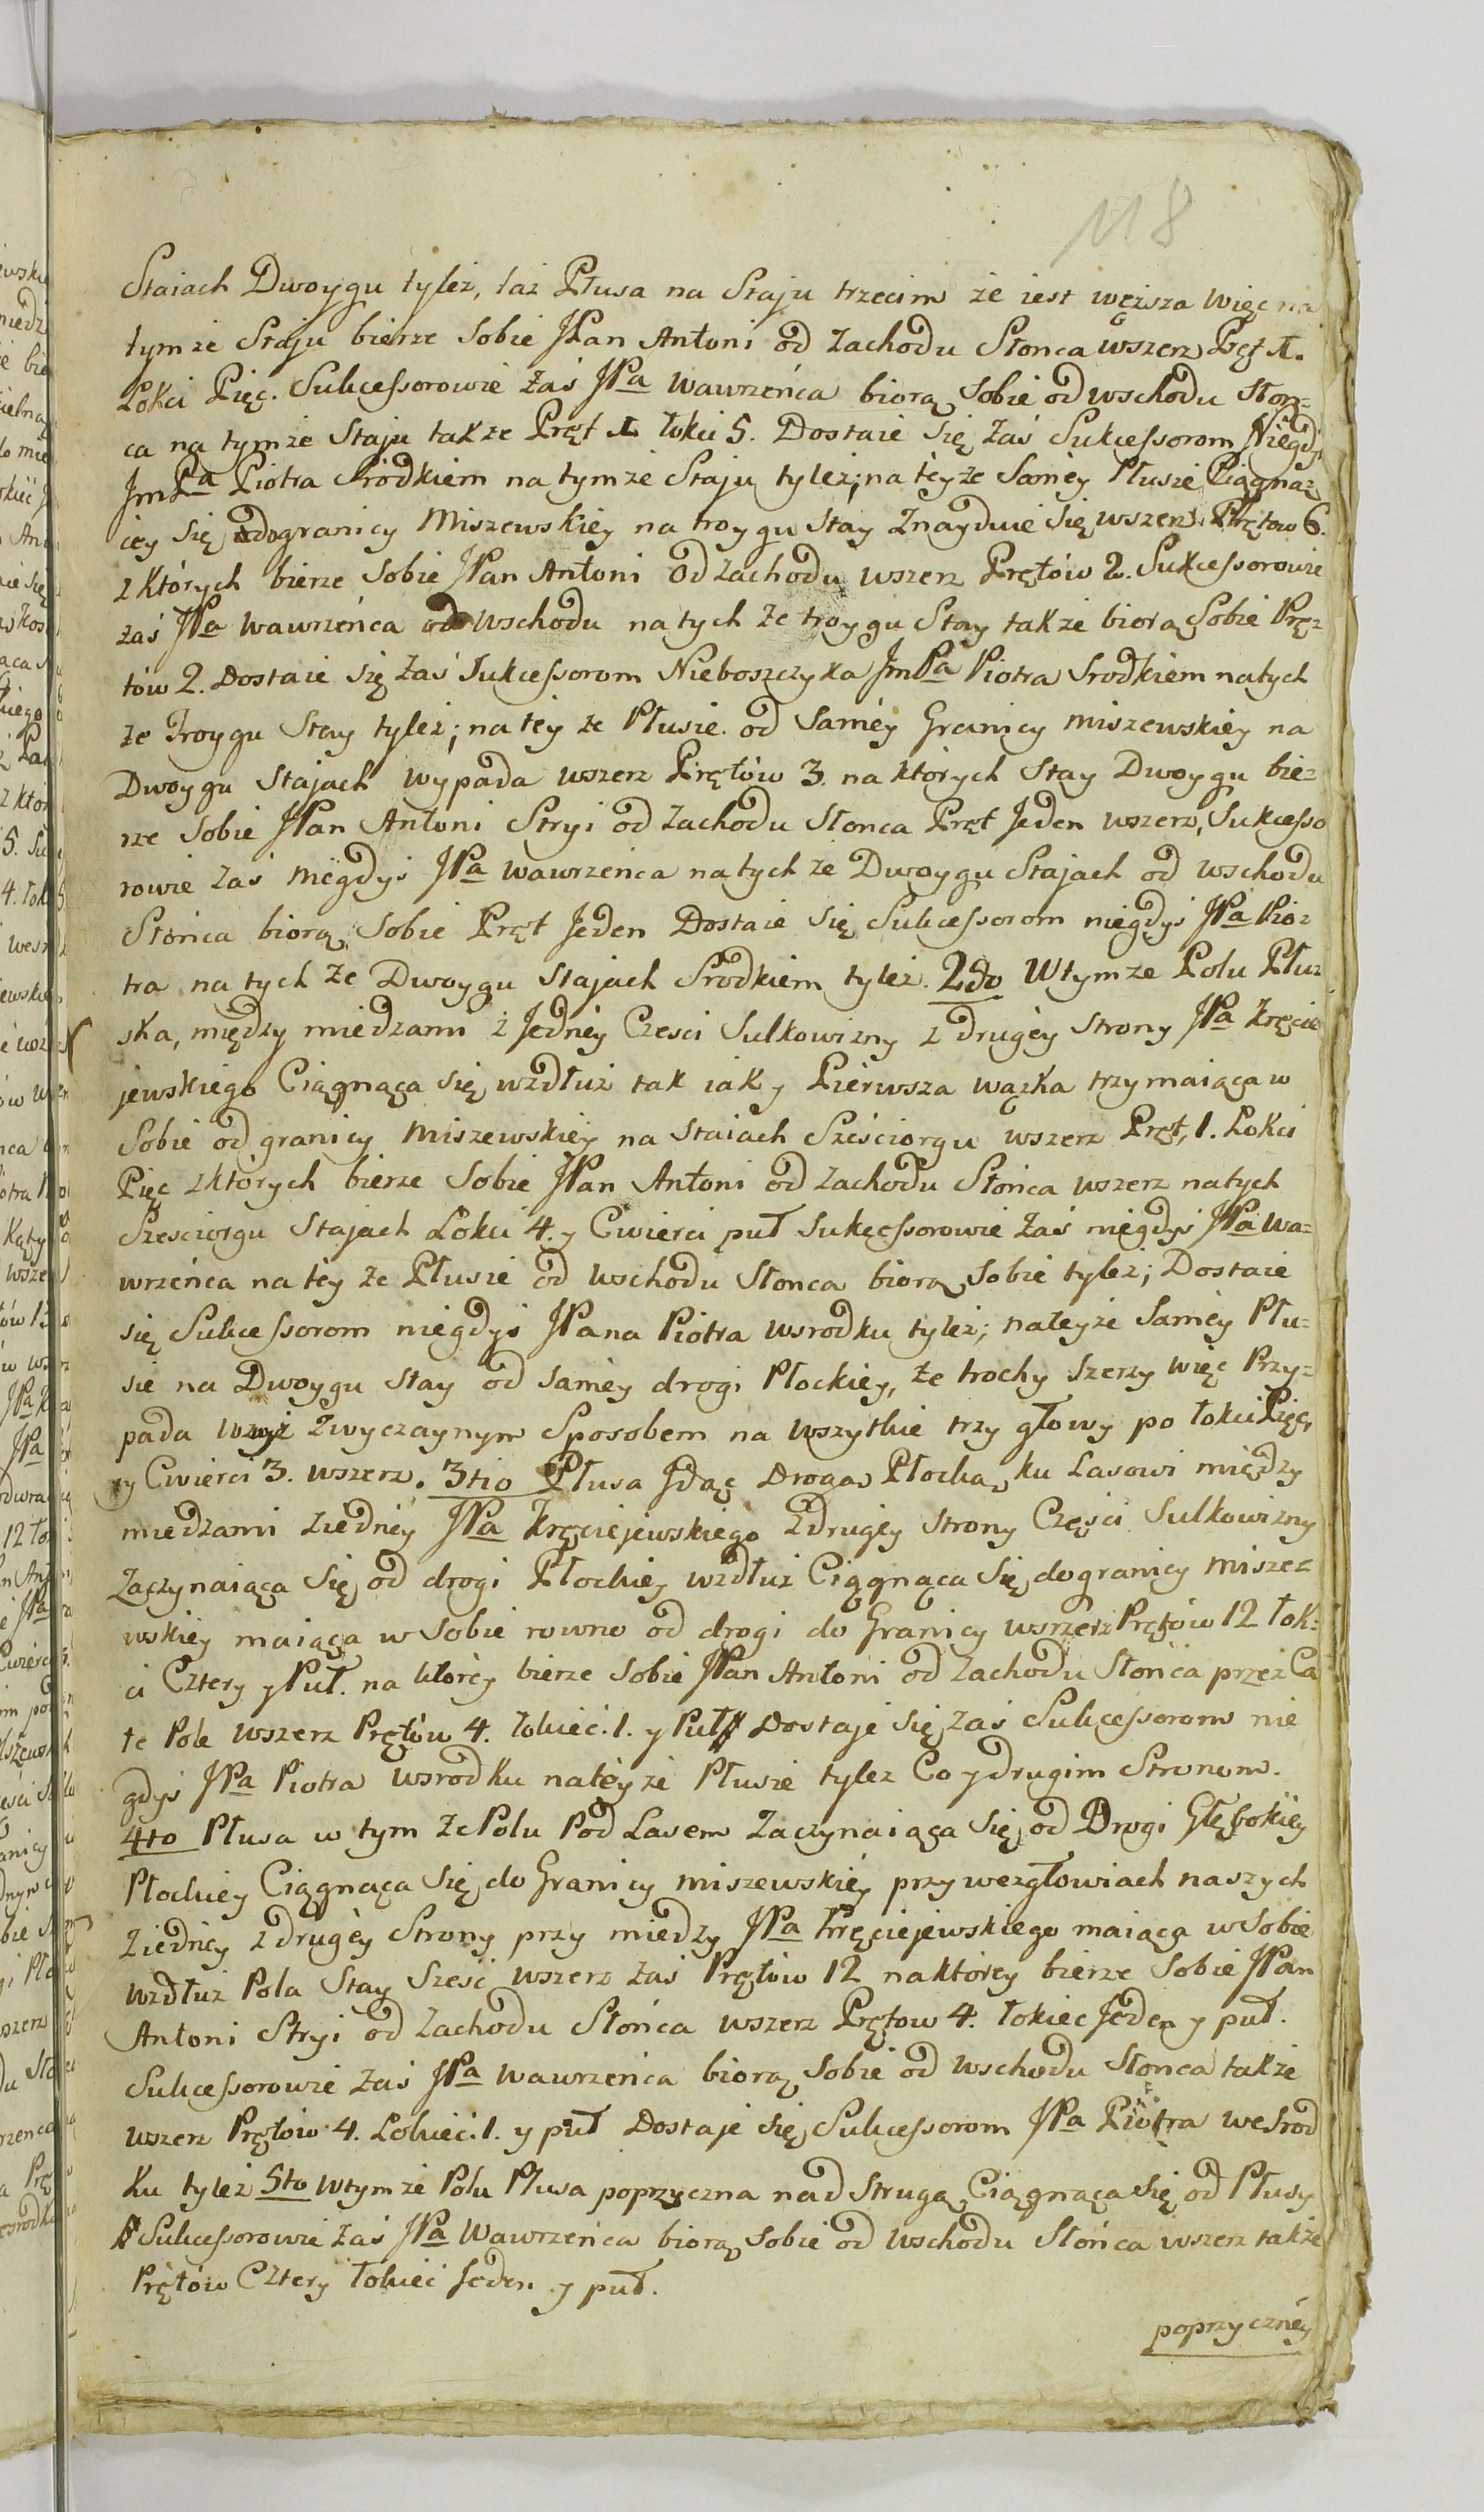 118
Staiach Dwoygu tyleż, taż Płusa na Staju trzecim że iest węższa więc na
tymże Staju bierze Sobie JPan Antoni od Zachodu Słonca wszerz Pręt 1.
Łokci Pięć. Sukcessorowie Zaś JPa Wawrzeńca biorą Sobie od wschodu Słon=
ca na tymże Staju także Pręt 1 łokci 5. Dostaie Się Zaś Sukcessorom Niegdy
JmPa Piotra Srodkiem na tymże Staju tyleż; na teyże Saméy Płusie Ciągnąz
cey Się do granicy Miszewskiey na troygu Stay Znayduie Się wszerz Prętow 6.
z których bierze Sobie JPan Antoni Od Zachodu wszerz Prętów 2. Sukcessorowie
zaś JPa Wawrzeńca od Wschodu na tych że troygu Stay także biorą Sobie Pręz
tów 2. Dostaie Się Zaś Sukcessorom Nieboszczyka JmPa Piotra Srodkiem na tych
że Troygu Stay tyleż; na tey że Płusie od Saméy Granicy miszewskiey na
Dwoygu Stajach wypada wszerz Prętów 3. na których Stay Dwoygu biez
rze Sobie JPan Antoni Stryi od Zachodu Słonca Pręt Jeden wszerz, Sukcesso
rowie Zaś niegdyś JPa Wawrzeńca na tych że Dwoygu Stajach od wschodu
Słońca biorą Sobie Pręt Jeden Dostaie Się Sukcessorom niegdyś JPa Pioz
tra na tych że Dwoygu Stajach Srodkiem tyleż. 2do W tymże Polu Płuz
ska, między miedzami z Jednéy Czesci Sulkowizny z drugéy Strony JPa Kręcie
jewskiego Ciągnąca Się wzdłuż tak iak y Pierwsza wązka trzymaiąca w
Sobie od granicy Miszewskiey na Staiach Sześciorgu wszerz Pręt, 1. Łokci
Pięć z których bierze Sobie JPan Antoni od Zachodu Słońca wszerz na tych
Szesciorgu Stajach Łokci 4. y Cwierci puł Sukcessorowie Zaś niegdyś JPa Wa=
wrzeńca na tey że Płusie od wschodu Słonca biorą Sobie tyleż; Dostaie
się Sukcessorom niegdyś JPana Piotra wsrodku tyleż; na teyże Saméy Płu=
sie na Dwoygu Stay od Saméy drogi Płockiey, że trochy Szerzy więc Przy=
pada wzyż Zwyczaynym Sposobem na wszytkie trzy głowy po łokci Pięć
y Cwierci 3. wszerz. 3tio Płusa Jdąc Drogą Płocką ku Lasowi między
miedzami z iednéy JPa Kręciejewskiego Z drugéy Strony Częsci Sulkowizny
Zaczynaiąca Się od drogi Płockiey wzdłuż Ciągnąca Się do granicy Miszez
wskiey maiąca w Sobie rowno od drogi do Granicy wszerz Prętów 12 łok=
ci Cztery y Puł. na ktoréy bierze Sobie JPan Antoni od Zachodu Słońca przez Ca
łe Pole wszerz Prętów 4. łokieć. 1. y Puł # Dostaje Się Zaś Sukcessorom nie
gdyś JPa Piotra wsrodku na teyże Płusie tyleż Co y drugim Stronom.
4to Płusa w tym że Polu Pod Lasem Zaczynaiąca Się od Drogi Głębokiey
Płockiey Ciągnąca Się do Granicy miszewskiey przy wezgłowiach naszych
Z iednéy z drugéy Strony przy miedzy JPa Kręciejewskiego maiąca w Sobie
wzdłuż Pola Stay Sześć wszerz Zaś Prętów 12 na któréy bierze Sobie JPan
Antoni Stryi od Zachodu Słońca wszerz Prętow 4. łokiec Jeden y puł.
Sukcessorowie Zaś JPa Wawrzeńca biorą Sobie od Wschodu Słonca także
wszerz Prętów 4. Łokieć. 1. y puł Dostaje Się Sukcessorom JPa Piotra we Srod
ku tyleż 5to W tymże Polu Płusa poprzyczna nad Strugą Ciągnąca Się od Płusy
# Sukcessorowie Zaś JPa Wawrzeńca biorą Sobie od Wschodu Słońca wszerz także
Prętów Cztery łokieć Jeden y puł.
poprzycznéy